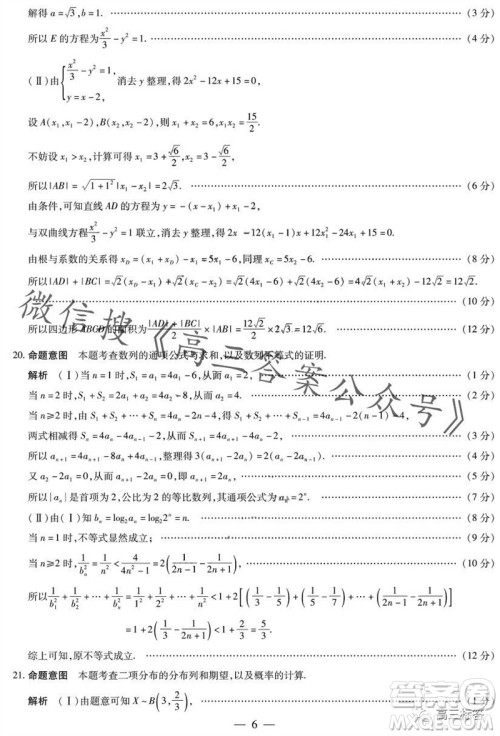 解得 a=√3, b=1. (3 分)
所以 E 的方程为 x²/3 - y²=1. (4 分)
(Ⅱ)由{x²/3 - y²=1, y=x-2, 消去 y 整理,得 2x²-12x+15=0,
设 A(x₁,x₁-2),B(x₂,x₂-2),则 x₁+x₂=6,x₁x₂=15/2.
不妨设 x₁>x₂,计算可得 x₁=3+√6/2,x₂=3-√6/2.
所以|AB|=√(1+1²)|x₁-x₂|=2√3. (6 分)
由条件,可知直线 AD 的方程为 y=-(x-x₁)+x₁-2,
与双曲线方程 x²/3 - y²=1 联立,消去 y 整理,得 2x²-12(x₁-1)x+12x₁²-24x₁+15=0.
由根与系数的关系得 x₁+x_D=6x₁-6,则 x_D=5x₁-6,同理 x_C=5x₂-6.
所以|AD|+|BC|=√2(x₁-x_D)+√2(x_C-x₂)=√2(4x₁-6)+√2(4x₂-6)=√2(4x₁-6)+√2(6-4x₂)=12√2. (10 分)
所以四边形 ABCD 的面积为 (|AD|+|BC|)/2×|AB|=12√2/2×2√3=12√6. (12 分)
20. 命题意图 本题考查数列的通项公式与求和,以及数列不等式的证明.
解析 (Ⅰ)当 n=1 时,S₁=a₁=4a₁-6,从而 a₁=2. (1 分)
当 n=2 时,S₁+S₂=a₁+a₁+a₂=4a₂-8,从而 a₂=4. (2 分)
两式相减得 Sₙ=4aₙ-4aₙ₋₁-2,从而 Sₙ₊₁=4aₙ₊₁-4aₙ-2. (5 分)
又 a₂-2a₁=0,从而 aₙ₊₁-2aₙ=0,即 aₙ₊₁=2aₙ. (6 分)
所以{aₙ}是首项为 2,公比为 2 的等比数列,其通项公式为 aₙ=2ⁿ. (7 分)
(Ⅱ)由(Ⅰ)知 bₙ=log₂aₙ=log₂2ⁿ=n. (8 分)
当 n=1 时,不等式显然成立; (9 分)
当 n≥2 时,1/bₙ²=1/n²<4/(4n²-1)=2(1/(2n-1)-1/(2n+1)), (10 分)
所以 1/b₁²+1/b₂²+⋯+1/bₙ²=1/1²+1/2²+⋯+1/n²<1+2[(1/3-1/5)+(1/5-1/7)+⋯+(1/(2n-1)-1/(2n+1))]
=1+2(1/3-1/(2n+1))<5/3.
综上可知,原不等式成立. (12 分)
21. 命题意图 本题考查二项分布的分布列和期望,以及概率的计算.
解析 (Ⅰ)由题意可知 X~B(3,2/3), (1 分)
— 6 —
微信搜《高三答案公众号》